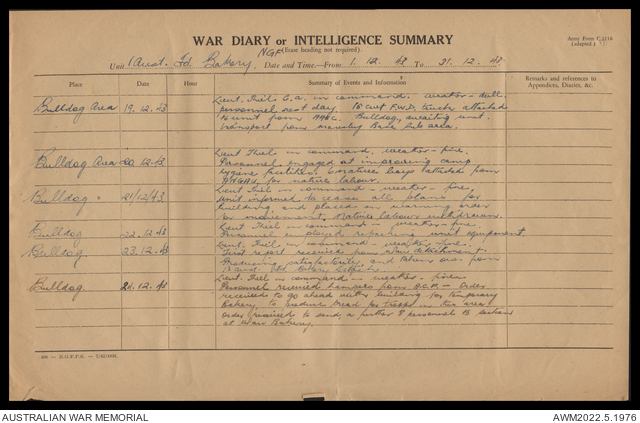 WAR DIARY or INTELLIGENCE SUMMARY
Army Form C.2118
(adapted)
(Erase heading not required).
NGF
Unit 1 Aust. Fd. Bakery, Date and Time—From 1. 12. 43 To 31. 12. 43
Place Date Hour Summary of Events and Information Remarks and references to Appendices, Diaries, &c.
Bulldog Area 19. 12. 43 Lieut. in command. weather - dull.
personnel rest day. 15 cwt F.W.D. truck attached
to unit from Bulldog, awaiting unit
transport from Base Sub area.
Bulldog Area 20. 12. 43 Lieut. in command, weather - fine.
Personnel engaged at improving camp
hygiene facilities. 6 natives boys attached from
ANGAU for native labour.
Bulldog " 21/12/43 Lieut. in command - weather - fine,
unit informed to cease all plans for
building, and placed on warning order
for movement. Natives labour withdrawn.
Bulldog 22. 12. 43 Lieut. in command - weather - fine.
Personnel engaged repacking unit equipment.
Bulldog. 23. 12. 43 Lieut. in command - weather fine.
First report received from detachment.
Producing satisfactorily, and taking over from
Bulldog. 24. 12. 43 Lieut. in command - weather - fine.
Personnel received hampers from A.C.F. - Order
received to go ahead with building for temporary
bakery, to produce bread for troops in this area
Order received to send a further 8 personnel to section
at Bakery.
AUSTRALIAN WAR MEMORIAL
AWM2022.5.1976